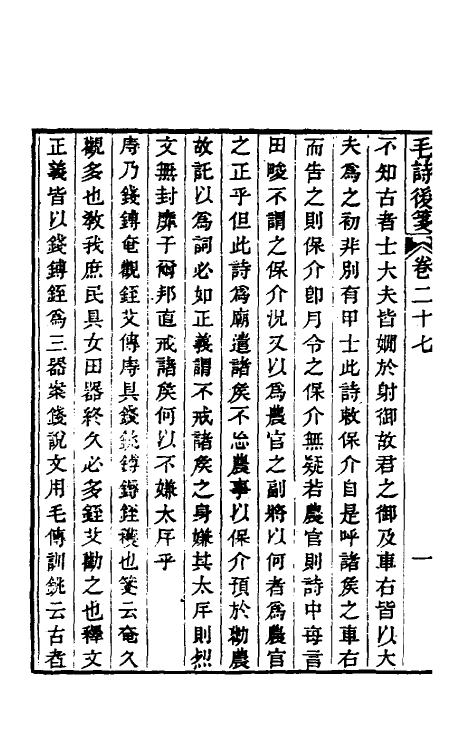 毛詩後箋 卷二十七 一
不知古者士大夫皆嫺於射御故君之御及車右皆以大
夫爲之初非別有甲士此詩敕保介自是呼諸矦之車右
而告之則保介卽月令之保介無疑若農官則詩中每言
田畯不謂之保介況又以爲農官之副將以何者爲農官
之正乎但此詩爲廟遣諸矦不忘農事以保介預於勸農
故託以爲詞必如正義謂不戒諸矦之身嫌其太斥則烈
文無封靡于爾邦直戒諸矦何以不嫌太斥乎
庤乃錢鎛奄觀銍艾傳庤具錢銚鎛鎒銍穫也箋云奄久
觀多也敎我庶民具女田器終久必多銍艾勸之也釋文
正義皆以錢鎛銍爲三器案箋說文用毛傳訓銚云古者